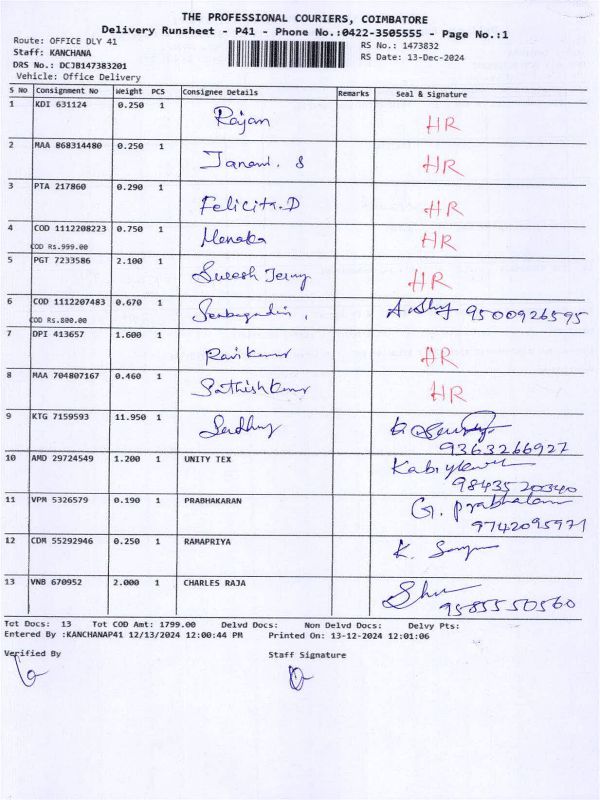 THE PROFESSIONAL COURIERS, COIMBATORE
Delivery Runsheet - P41 - Phone No.:0422-3505555 - Page No.:1
Route: OFFICE DLY 41
RS No.: 1473832
Staff: KANCHANA
RS Date: 13-Dec-2024
DRS No.: DCJB147383201
Vehicle: Office Delivery
S No Consignment No Weight PCS Consignee Details Remarks Seal & Signature
1 KDI 631124 0.250 1 Rajan HR
2 MAA 868314480 0.250 1 Janani. S HR
3 PTA 217860 0.290 1 Felicita.D HR
4 COD 1112208223 0.750 1 Menaka HR
COD Rs.999.00
5 PGT 7233586 2.100 1 Suresh HR
6 COD 1112207483 0.670 1 9500926595
COD Rs.800.00
7 DPI 413657 1.600 1 Ravi kumar HR
8 MAA 704807167 0.460 1 Sathish kumar HR
9 KTG 7159593 11.950 1
9363266927
10 AMD 29724549 1.200 1 UNITY TEX
9843520340
11 VPM 5326579 0.190 1 PRABHAKARAN G. Prabhakaran
9742095971
12 CDM 55292946 0.250 1 RAMAPRIYA K.
13 VNB 670952 2.000 1 CHARLES RAJA
9585550560
Tot Docs: 13 Tot COD Amt: 1799.00 Delvd Docs: Non Delvd Docs: Delvy Pts:
Entered By :KANCHANAP41 12/13/2024 12:00:44 PM Printed On: 13-12-2024 12:01:06
Verified By Staff Signature